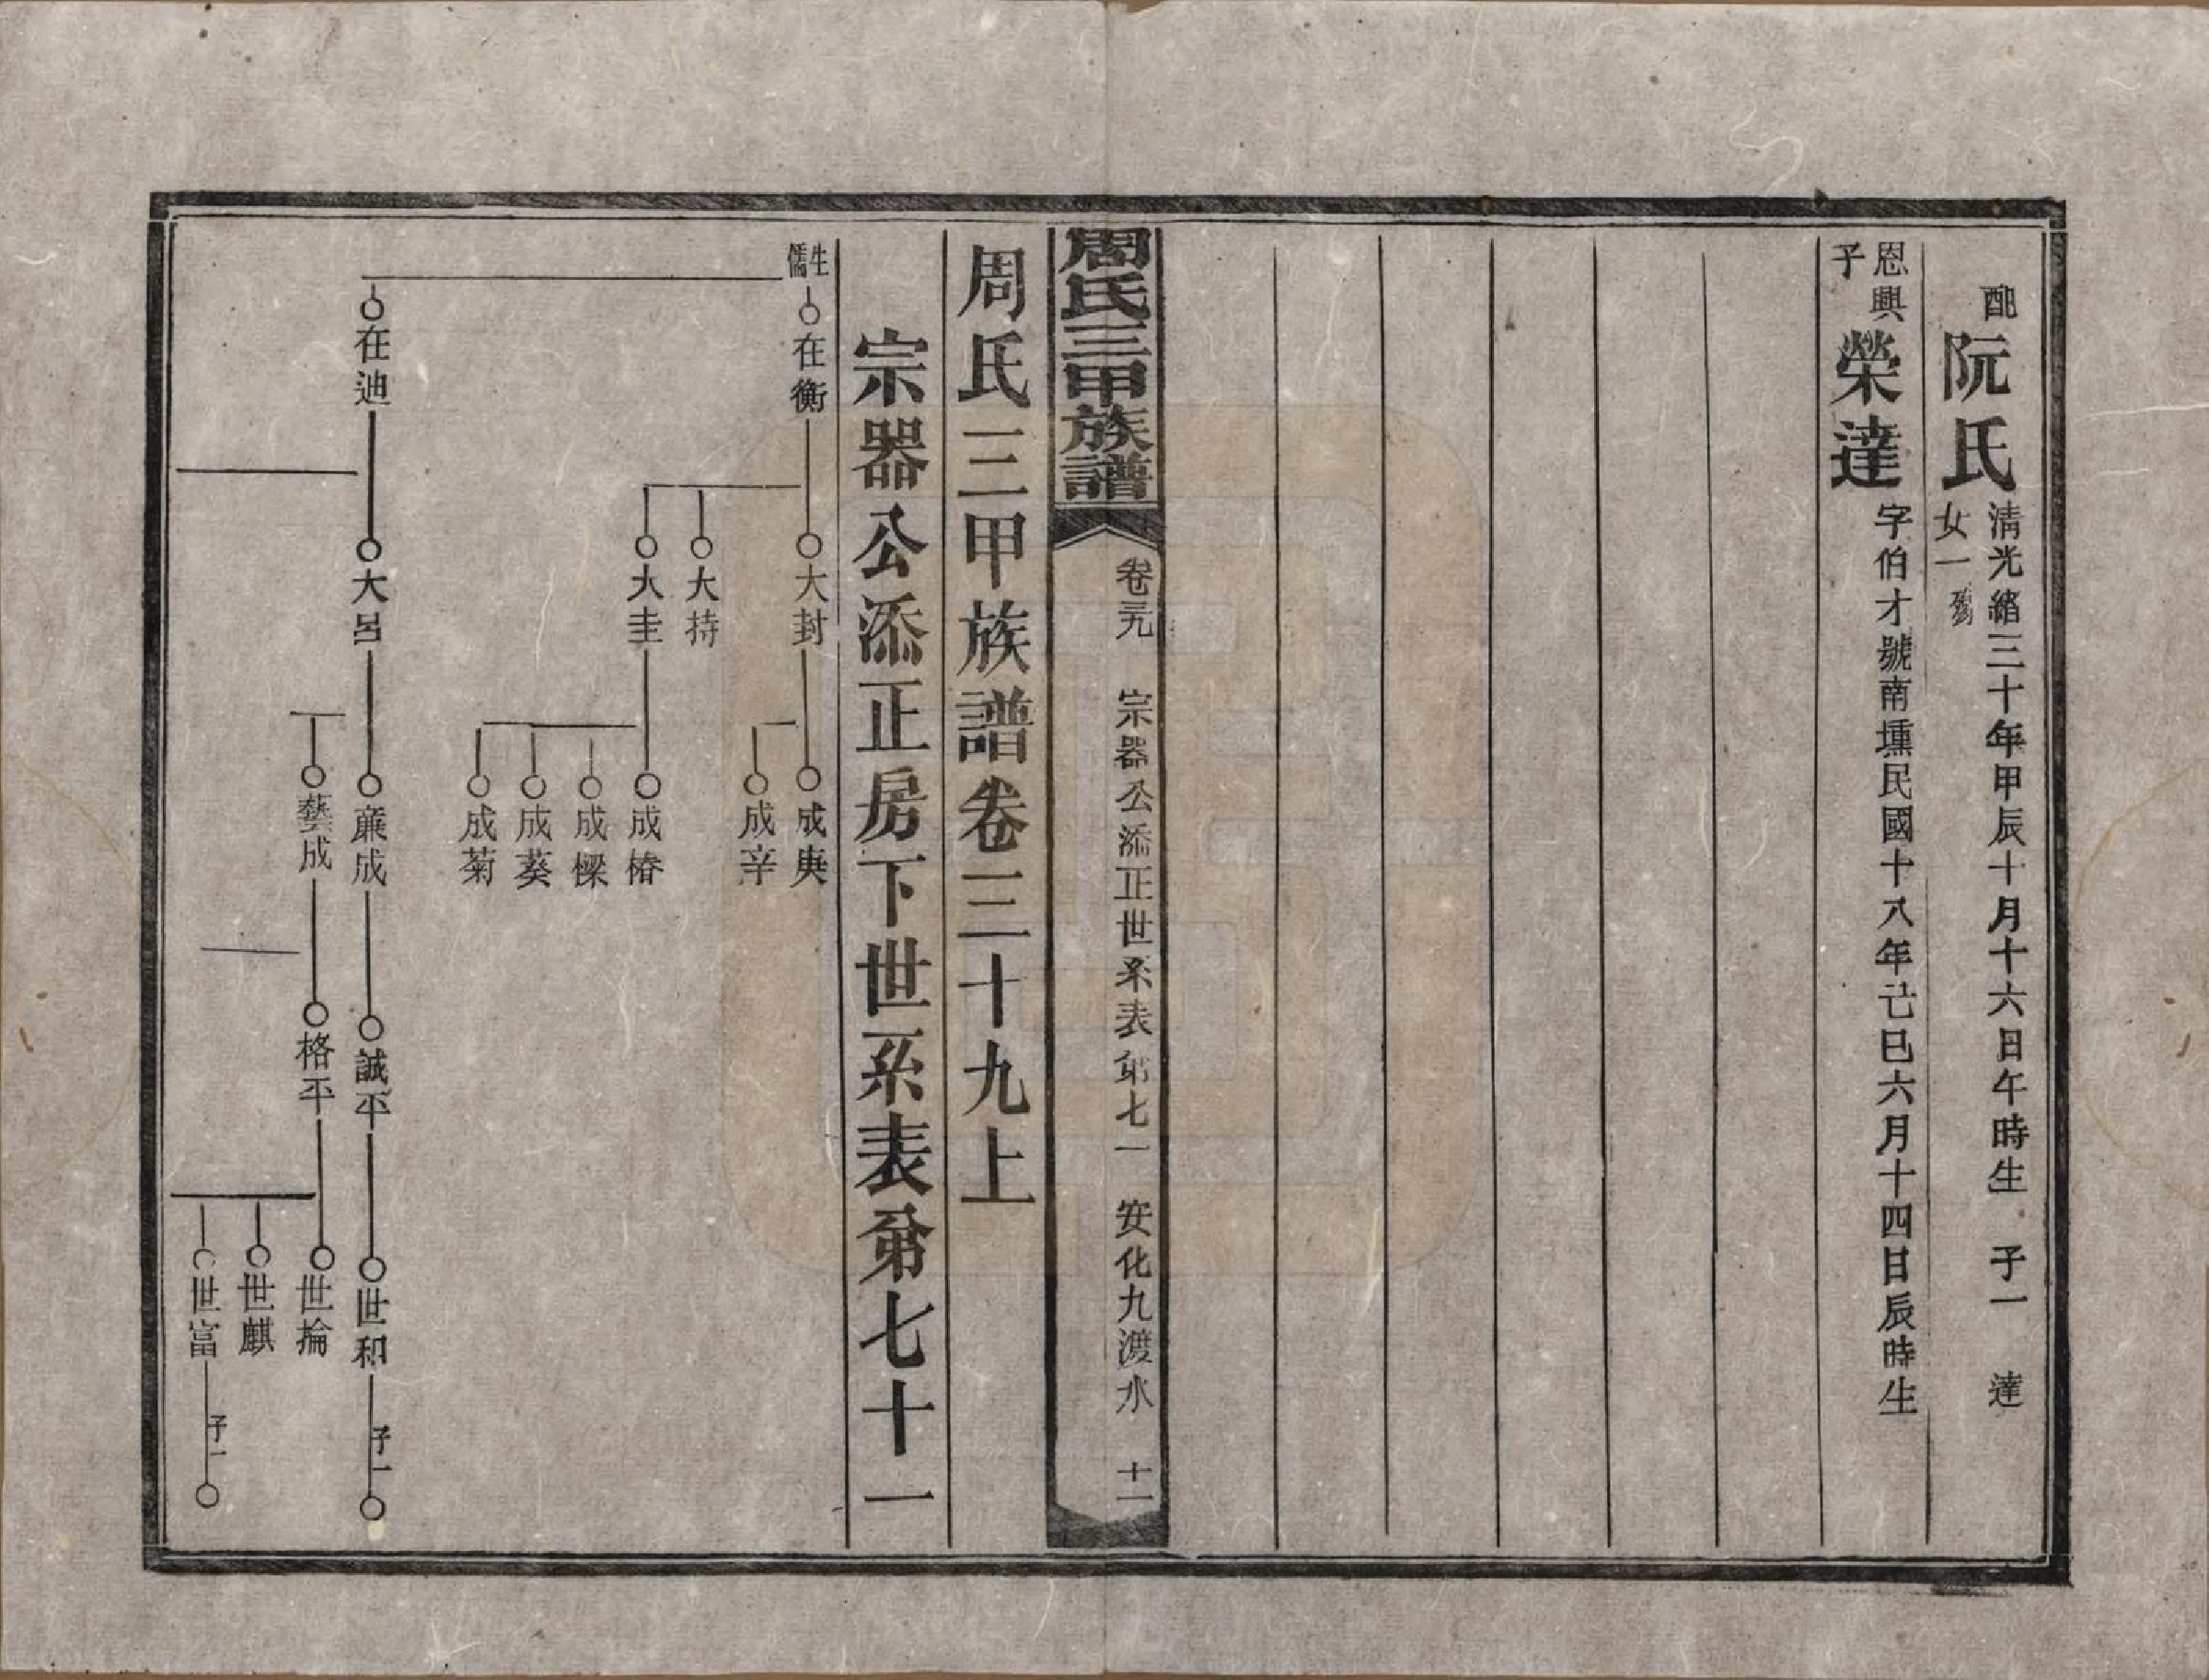 配
阮氏
清光緒三十年甲辰十月十六日午時生 子一 達
女一 殤
恩興
子
榮達
字伯才號南壎民國十八年己巳六月十四日辰時生
周氏三甲族譜
卷三九 宗器公添正世系表第七一 安化九渡水 十一
周氏三甲族譜卷三十九上
宗器公添正房下世系表第七十一
生儒
在衡
大封
成庚
成辛
大持
大圭
成椿
成樑
成葵
成菊
在迪
大呂
廉成
誠平
世和
子一
藝成
格平
世掄
世麒
世富
子一